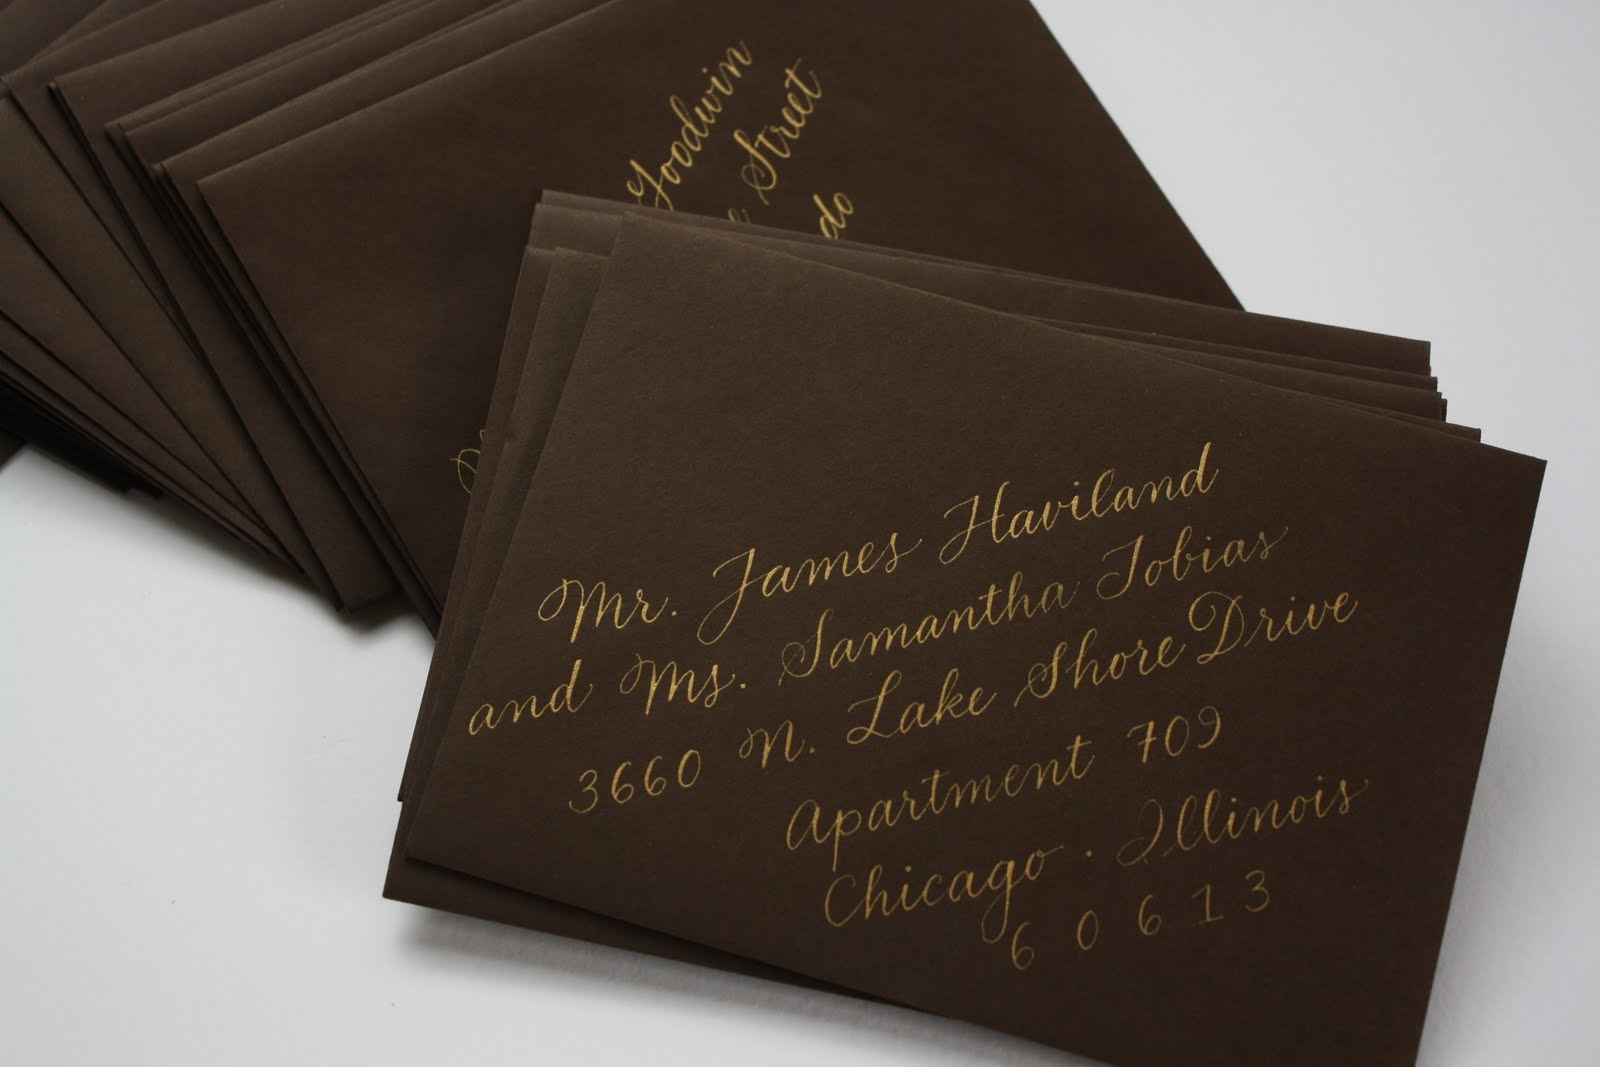 Goodwin
Street
Mr. James Haviland
and Ms. Samantha Tobias
3660 N. Lake Shore Drive
Apartment 709
Chicago · Illinois
60613